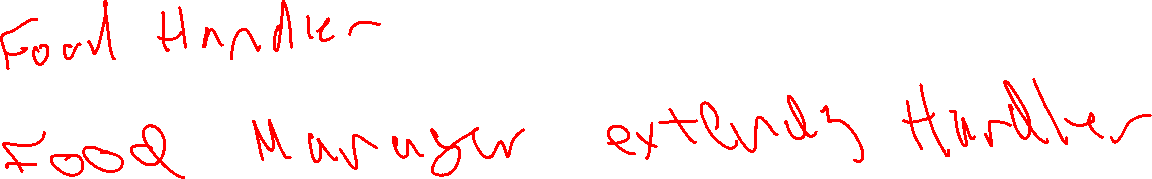 Food Handler
Food Manager extends Handler